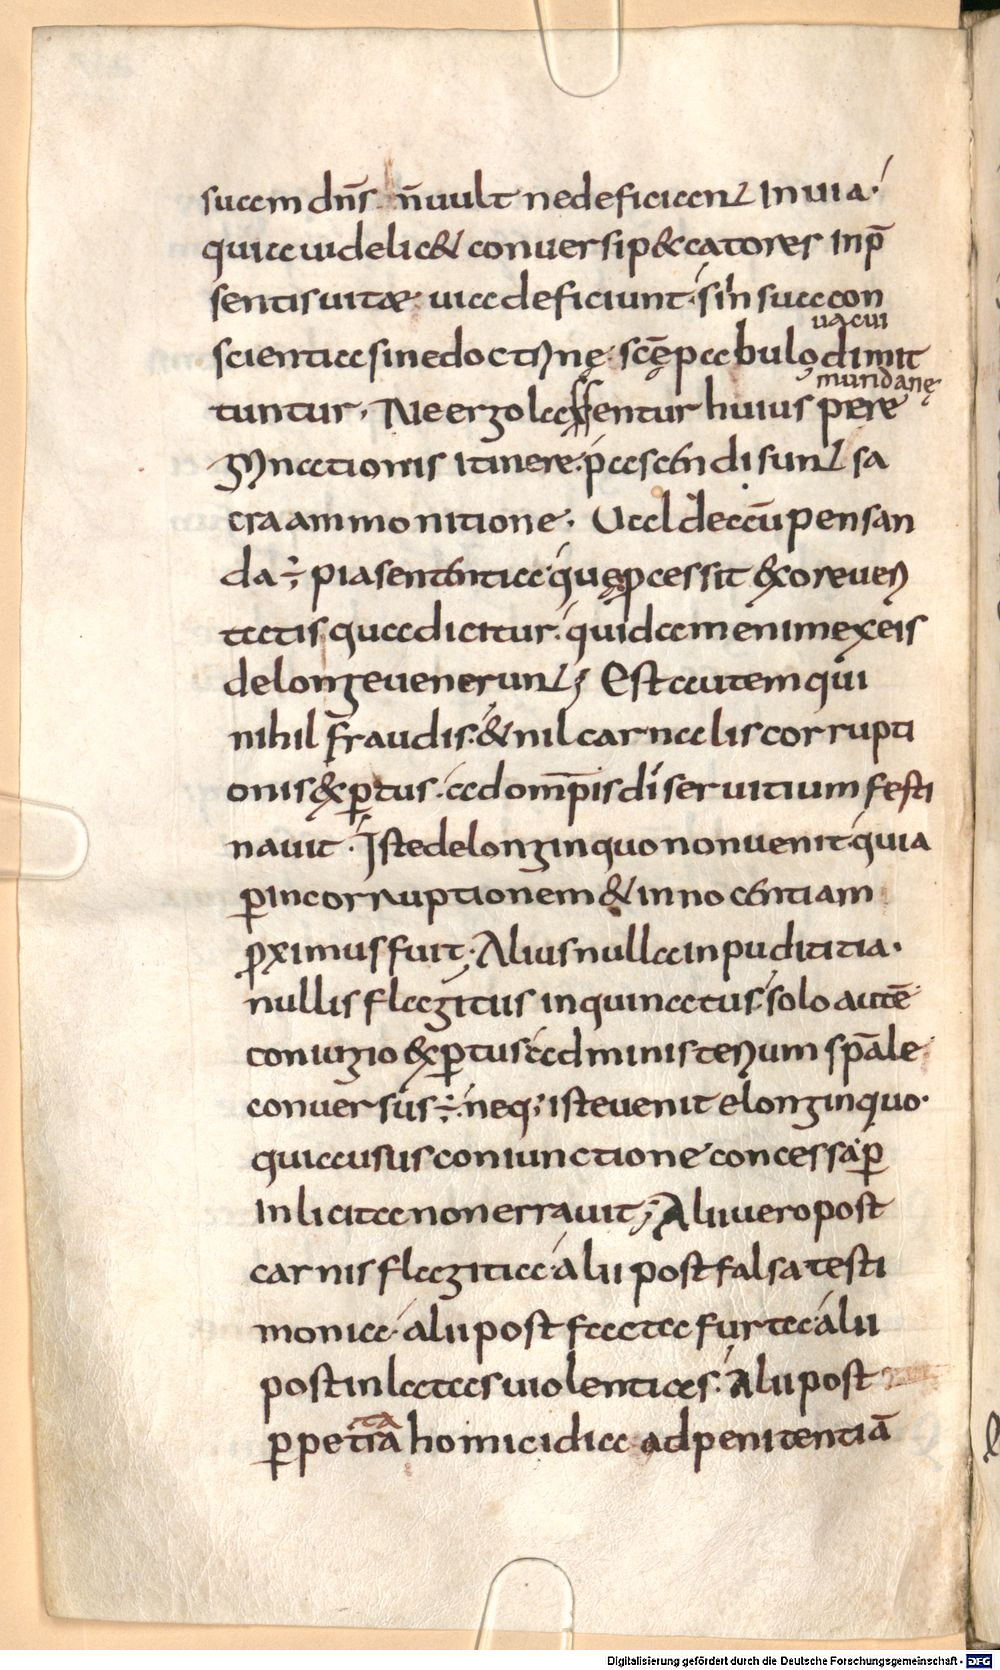 suam dn̄s n̄ uult ne deficiant In uia·
quia uidelic& conuersi p&catores Inp̄
sentis uitæ uia deficiunt· si In sua con
uacui
scientia sine doctrinę scę̄ pabulo dimit
mundanę
tuntur, Ne ergo lassentur huius pere
grinationis itinere· pascendi sunt sa
cra ammonitione· Ualde aūt pensan
da ÷ pia sententia· quę pcessit &x ore ueri
tatis quae dicitur· quidam enim ex eis
de longe uenerunt; Est autem qui
nihil fraudis· & nil carnalis corrupti
onis &xptus· ad omp̄is di seruitium festi
nauit· Iste de longinquo non uenit· quia
p incorruptionem & innocentiam
pximus fuit· Alius nulla inpudititia·
nullis flagitus inquinatus· solo autē
coniugio &xptus ad ministerium sp̄ale
conuersus ÷· neq; iste uenit e longinquo·
quia usus coniunctione concessa· p
Inlicita non errauit; Alii uero post
carnis flagitia· alii post falsa testi
monia· alii post facta furta· alii
post inlatas uiolentias· Alii post
ta
ppetrā homicidia ad penitentiā
Digitalisierung gefördert durch die Deutsche Forschungsgemeinschaft - DFG